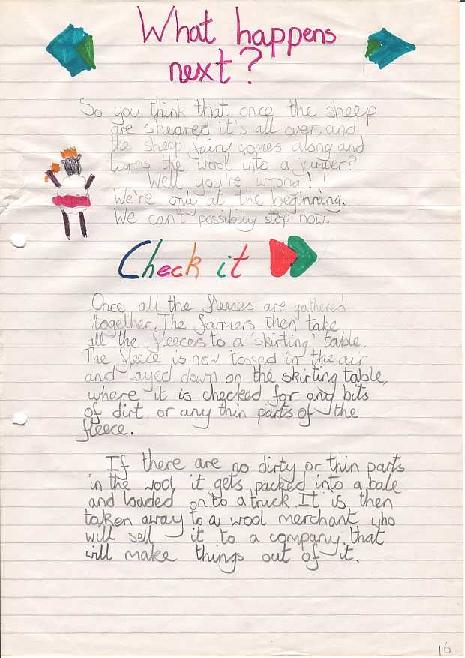 What happens
next?
So you think that once the sheep
are sheared it's all over and
the sheep fairy comes along and
turns the wool into a jumper?
Well you're wrong!
We're only at the beginning.
We can't possibly stop now.
Check it
Once all the fleeces are gathered
together. The farmers then take
all the fleeces to a 'skirting' table.
The fleece is now tossed in the air
and layed down on the skirting table,
where it is checked for and bits
of dirt or any thin parts of the
fleece.
If there are no dirty or thin parts
in the wool it gets packed into a bale
and loaded on to a truck. It is then
taken away to a wool merchant who
will sell it to a company that
will make things out of it.
16